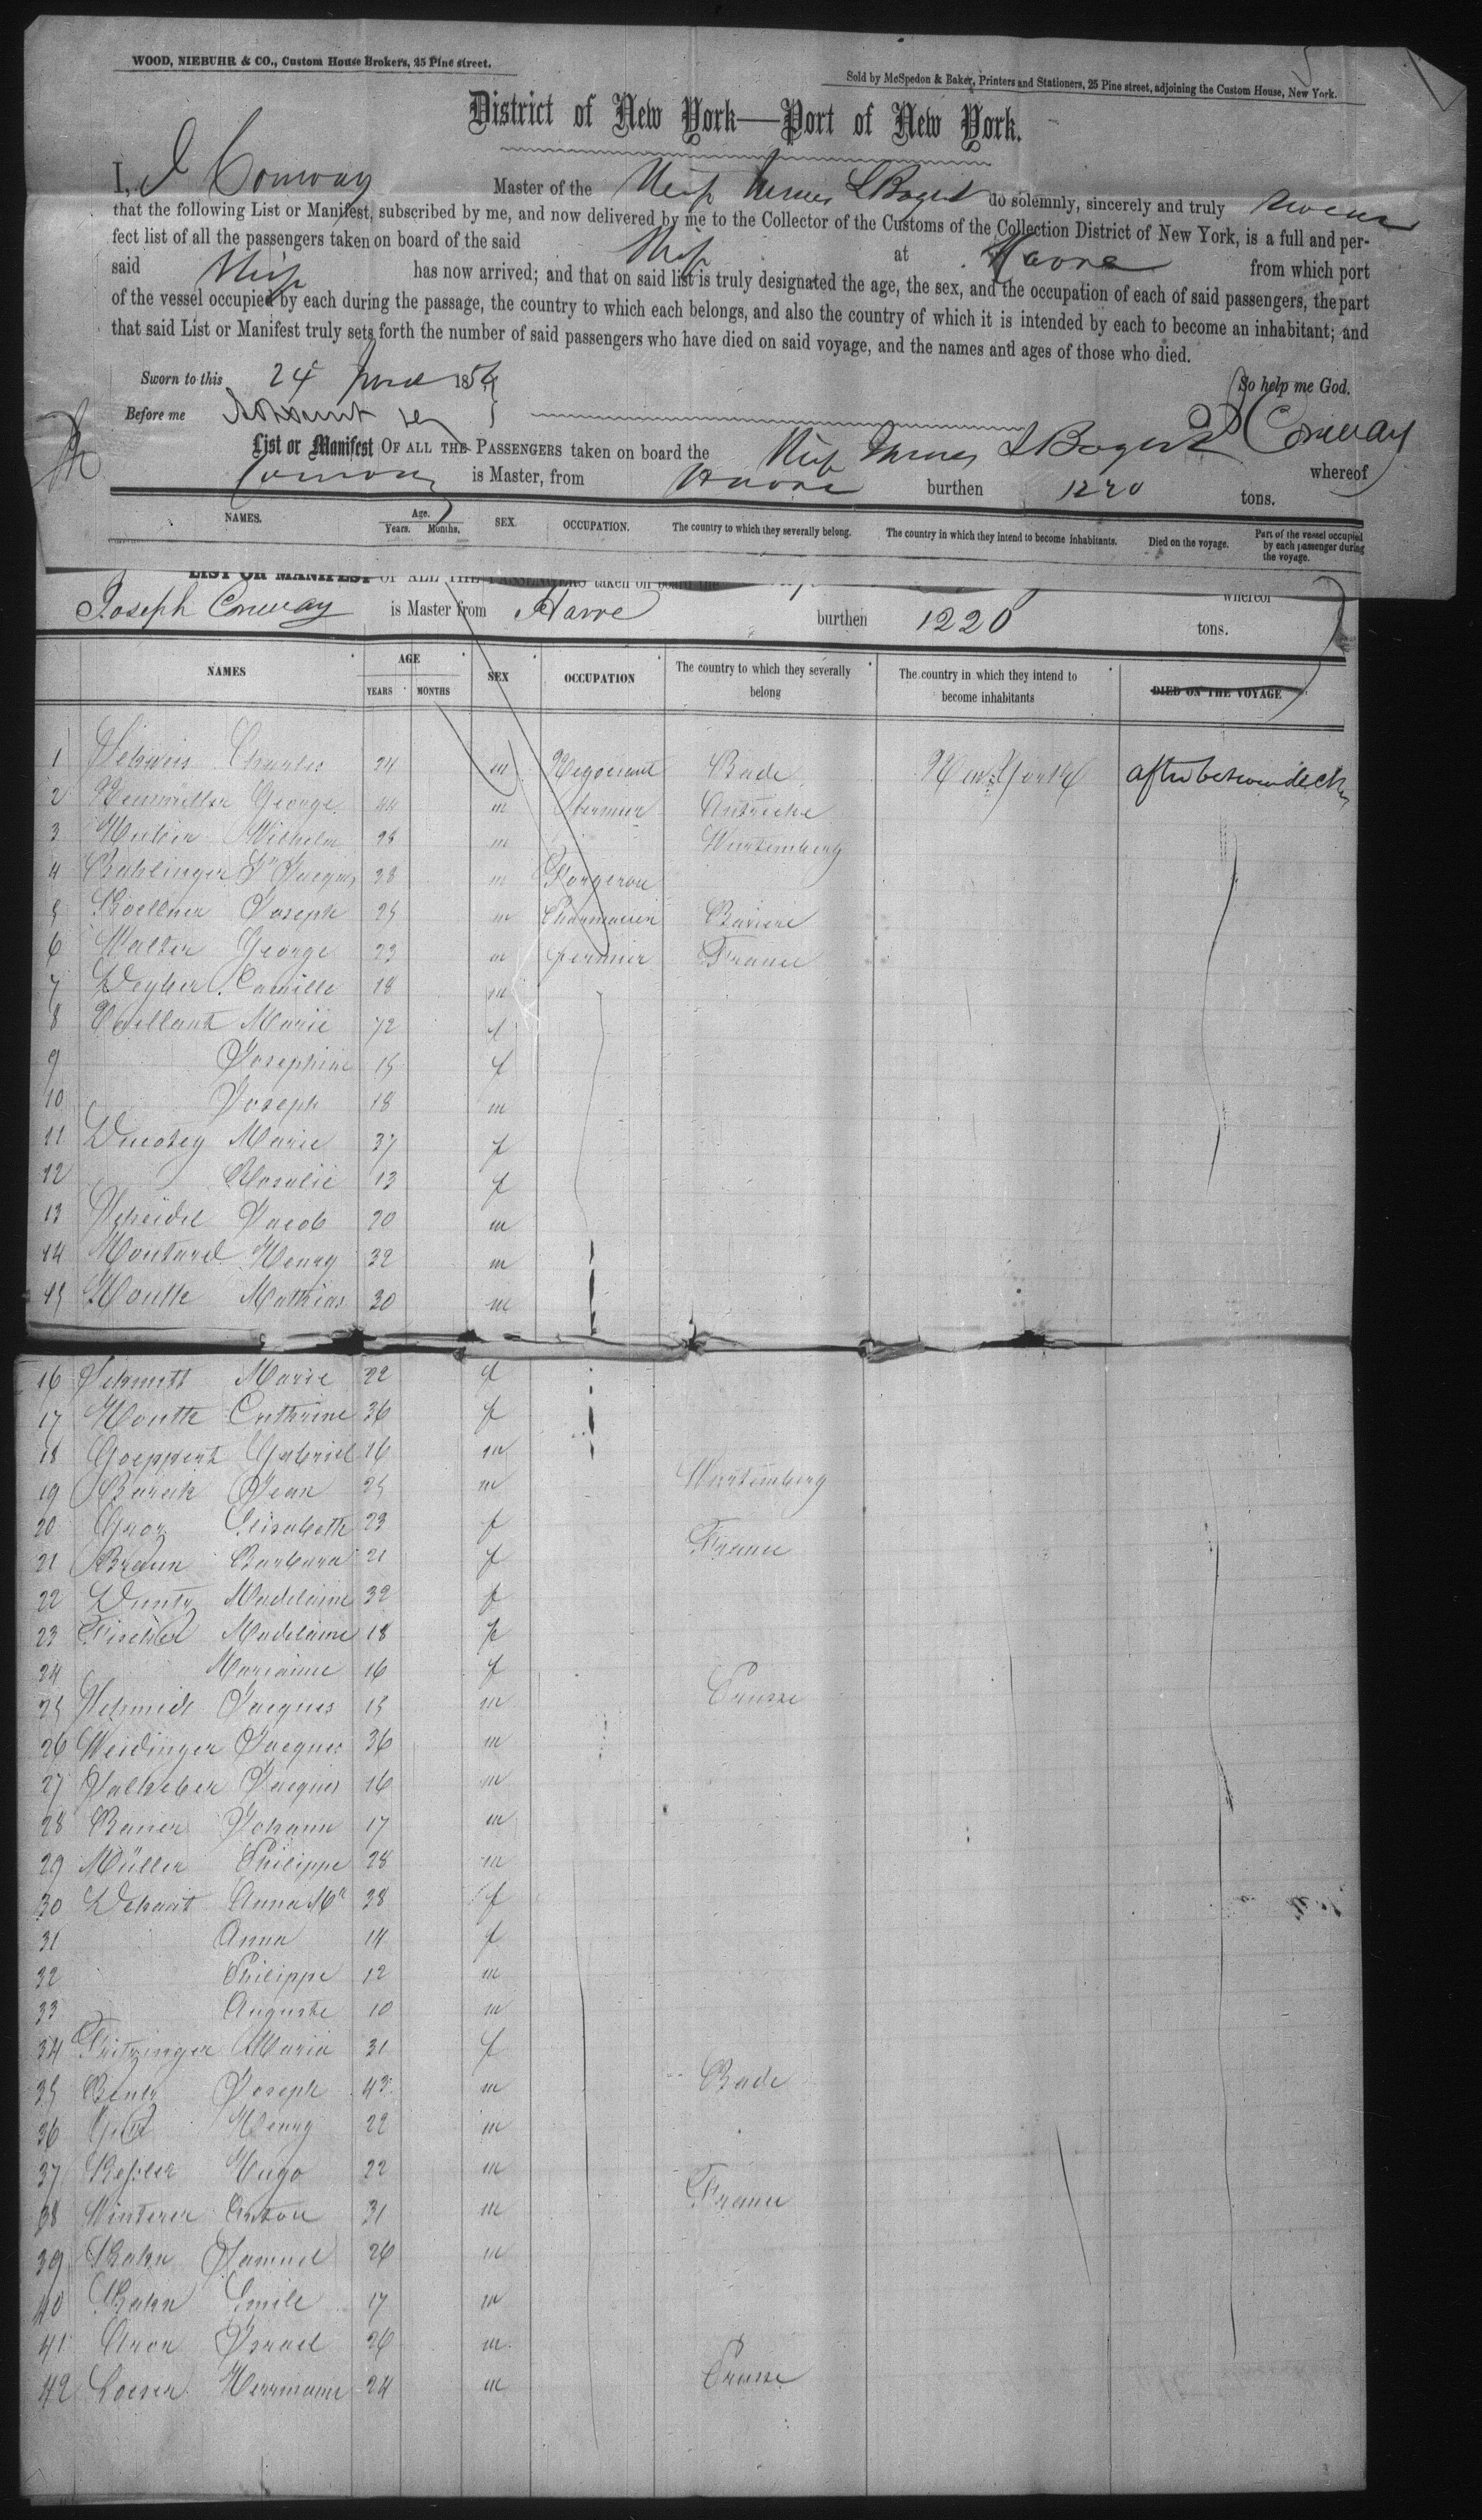 WOOD, NIEBUHR & CO., Custom House Brokers, 25 Pine street.
Sold by McSpedon & Baker, Printers and Stationers, 25 Pine street, adjoining the Custom House, New York.
District of New York—Port of New York.
I, J Conway Master of the Ship James L Bogert do solemnly, sincerely and truly swear
that the following List or Manifest, subscribed by me, and now delivered by me to the Collector of the Customs of the Collection District of New York, is a full and per-
fect list of all the passengers taken on board of the said Ship at Havre from which port
said Ship has now arrived; and that on said list is truly designated the age, the sex, and the occupation of each of said passengers, the part
of the vessel occupied by each during the passage, the country to which each belongs, and also the country of which it is intended by each to become an inhabitant; and
that said List or Manifest truly sets forth the number of said passengers who have died on said voyage, and the names and ages of those who died.
Sworn to this 24 June 1856 So help me God.
Before me J Conway
List or Manifest OF ALL THE PASSENGERS taken on board the Ship James L Bogert whereof
Conway is Master, from Havre burthen 1220 tons.
NAMES. Age. Years. Months. SEX. OCCUPATION. The country to which they severally belong. The country in which they intend to become inhabitants. Died on the voyage. Part of the vessel occupied by each passenger during the voyage.
LIST OR MANIFEST OF ALL THE PASSENGERS taken on board the whereof
Joseph Conway is Master from Havre burthen 1220 tons.
NAMES AGE YEARS MONTHS SEX OCCUPATION The country to which they severally belong The country in which they intend to become inhabitants DIED ON THE VOYAGE
1 Charles 24 m Negociant Bade New York after between decks
2 George 44 m fermier Autriche
3 Huber Wilhelm 28 m Wurtemberg
4 Jacques 28 m Forgeron
5 Koellner Joseph 25 m Pharmacien Baviere
6 Walter George 23 m fermier France
7 Camille 18 m
8 Vaillant Marie 72 f
9 Josephine 15 f
10 Joseph 18 m
11 Marie 37 f
12 Rosalie 13 f
13 Scheidel Jacob 20 m
14 Moutard Henry 32 m
15 Mathias 30 m
16 Schmitt Marie 22 f
17 Cathrine 36 f
18 Goeppert Gabriel 16 m
19 Jean 25 m Wurtemberg
20 Elisabeth 23 f
21 Braun Barbara 21 f France
22 Madelaine 32 f
23 Fischer Madelaine 18 f
24 Marianne 16 f
25 Schmidt Jacques 15 m Prusse
26 Weidinger Jacques 36 m
27 Jacques 16 m
28 Bauer Johann 17 m
29 Müller Philippe 28 m
30 Anna Ma 38 f
31 Anna 14 f
32 Philippe 12 m
33 Auguste 10 m
34 Fritzinger Maria 31 f
35 Bentz Joseph 43 m Bade
36 Henry 22 m
37 Kessler Hugo 22 m
38 Winterer Anton 31 m France
39 Kahn Samuel 26 m
40 Kahn Emile 17 m
41 Aron Israel 26 m
42 Loeser Hermann 24 m Prusse